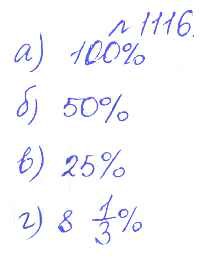 № 1116.
а) 100%
б) 50%
в) 25%
г) 8 1/3 %